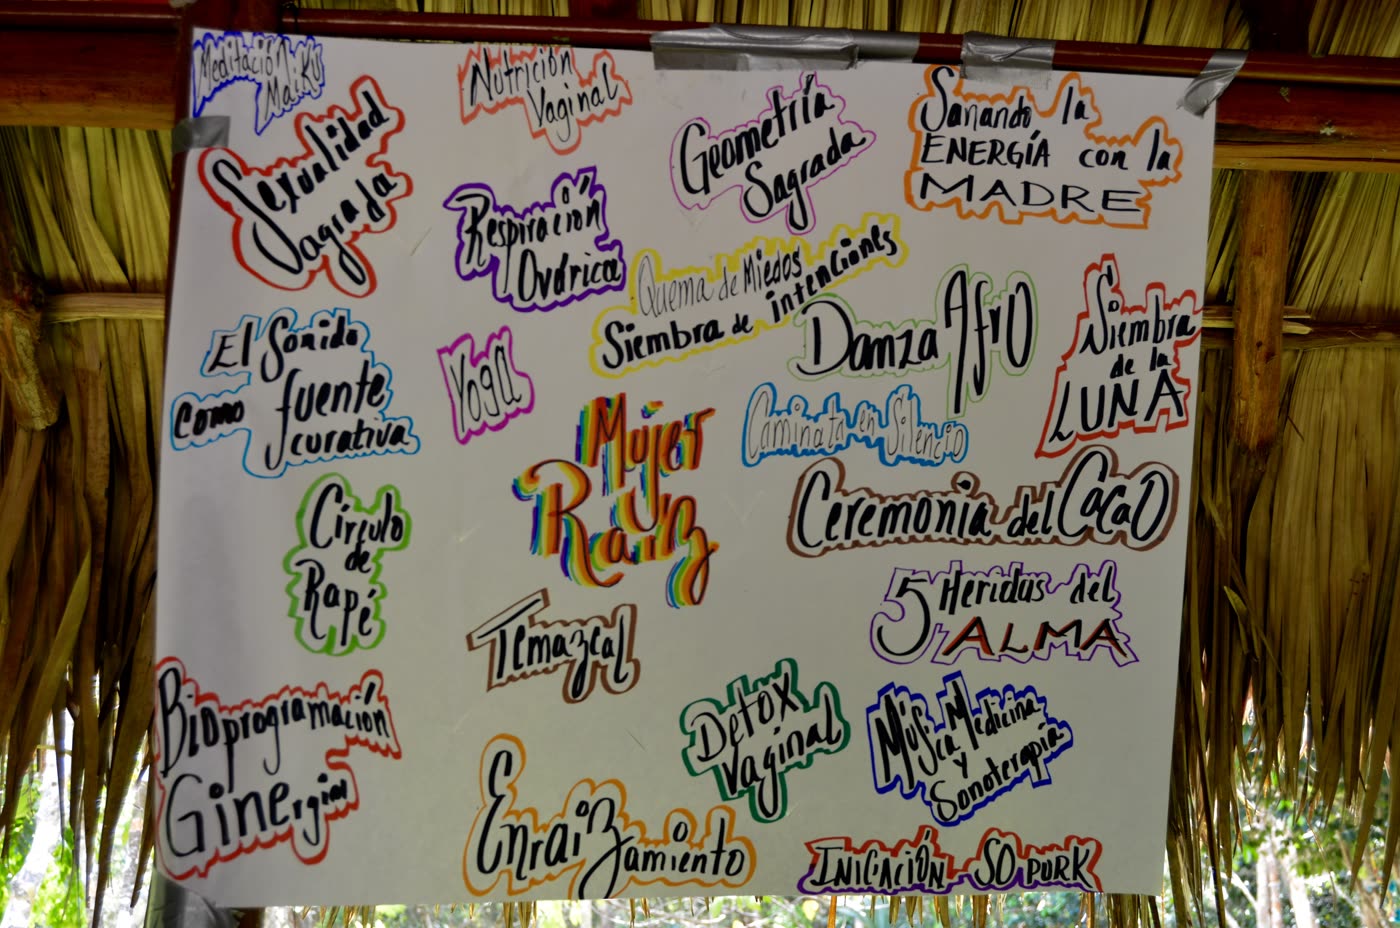 Meditación
Maikú
Nutrición
Vaginal
Geometría
Sagrada
Sanando la
ENERGÍA con la
MADRE
Sexualidad
Sagrada
Respiración
Ovárica
Quema de Miedos
Siembra de intenciones
Danza Afro
Siembra
de la
LUNA
El Sonido
como fuente
curativa
Yoga
Mujer
Raíz
Caminata en Silencio
Ceremonia del Cacao
Círculo
de
Rapé
5 Heridas del
ALMA
Temazcal
Bioprogramación
Ginergial
Detox
Vaginal
Música Medicina
y
Sonoterapia
Enraizamiento
INICIACIÓN SO PURK